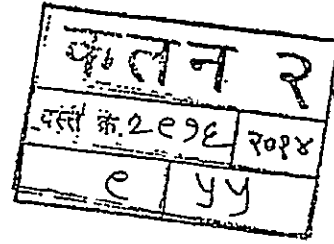 फलन २
दस्त क्र. २९७६ २०१४
९ ५५